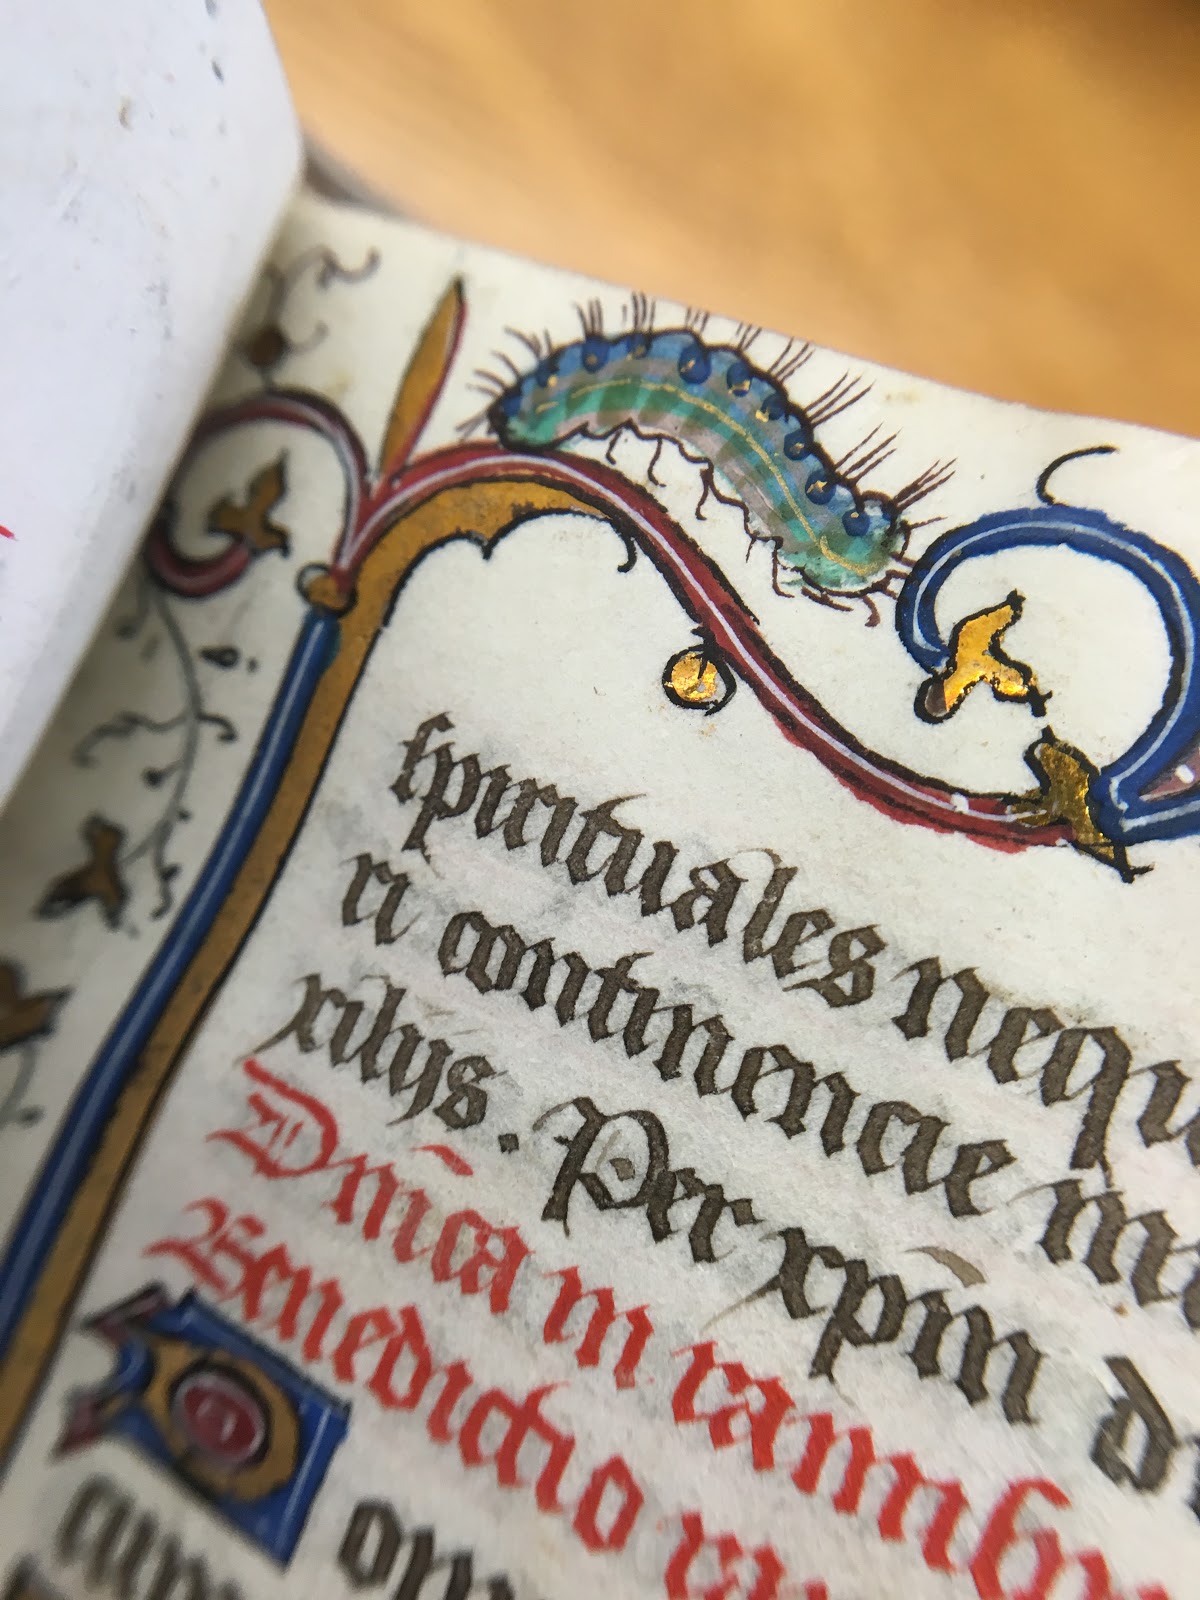 spirituales nequ
ri continencie mu
xilijs. Per xp̄m d
Dn̄ica in ramis
Benedictio